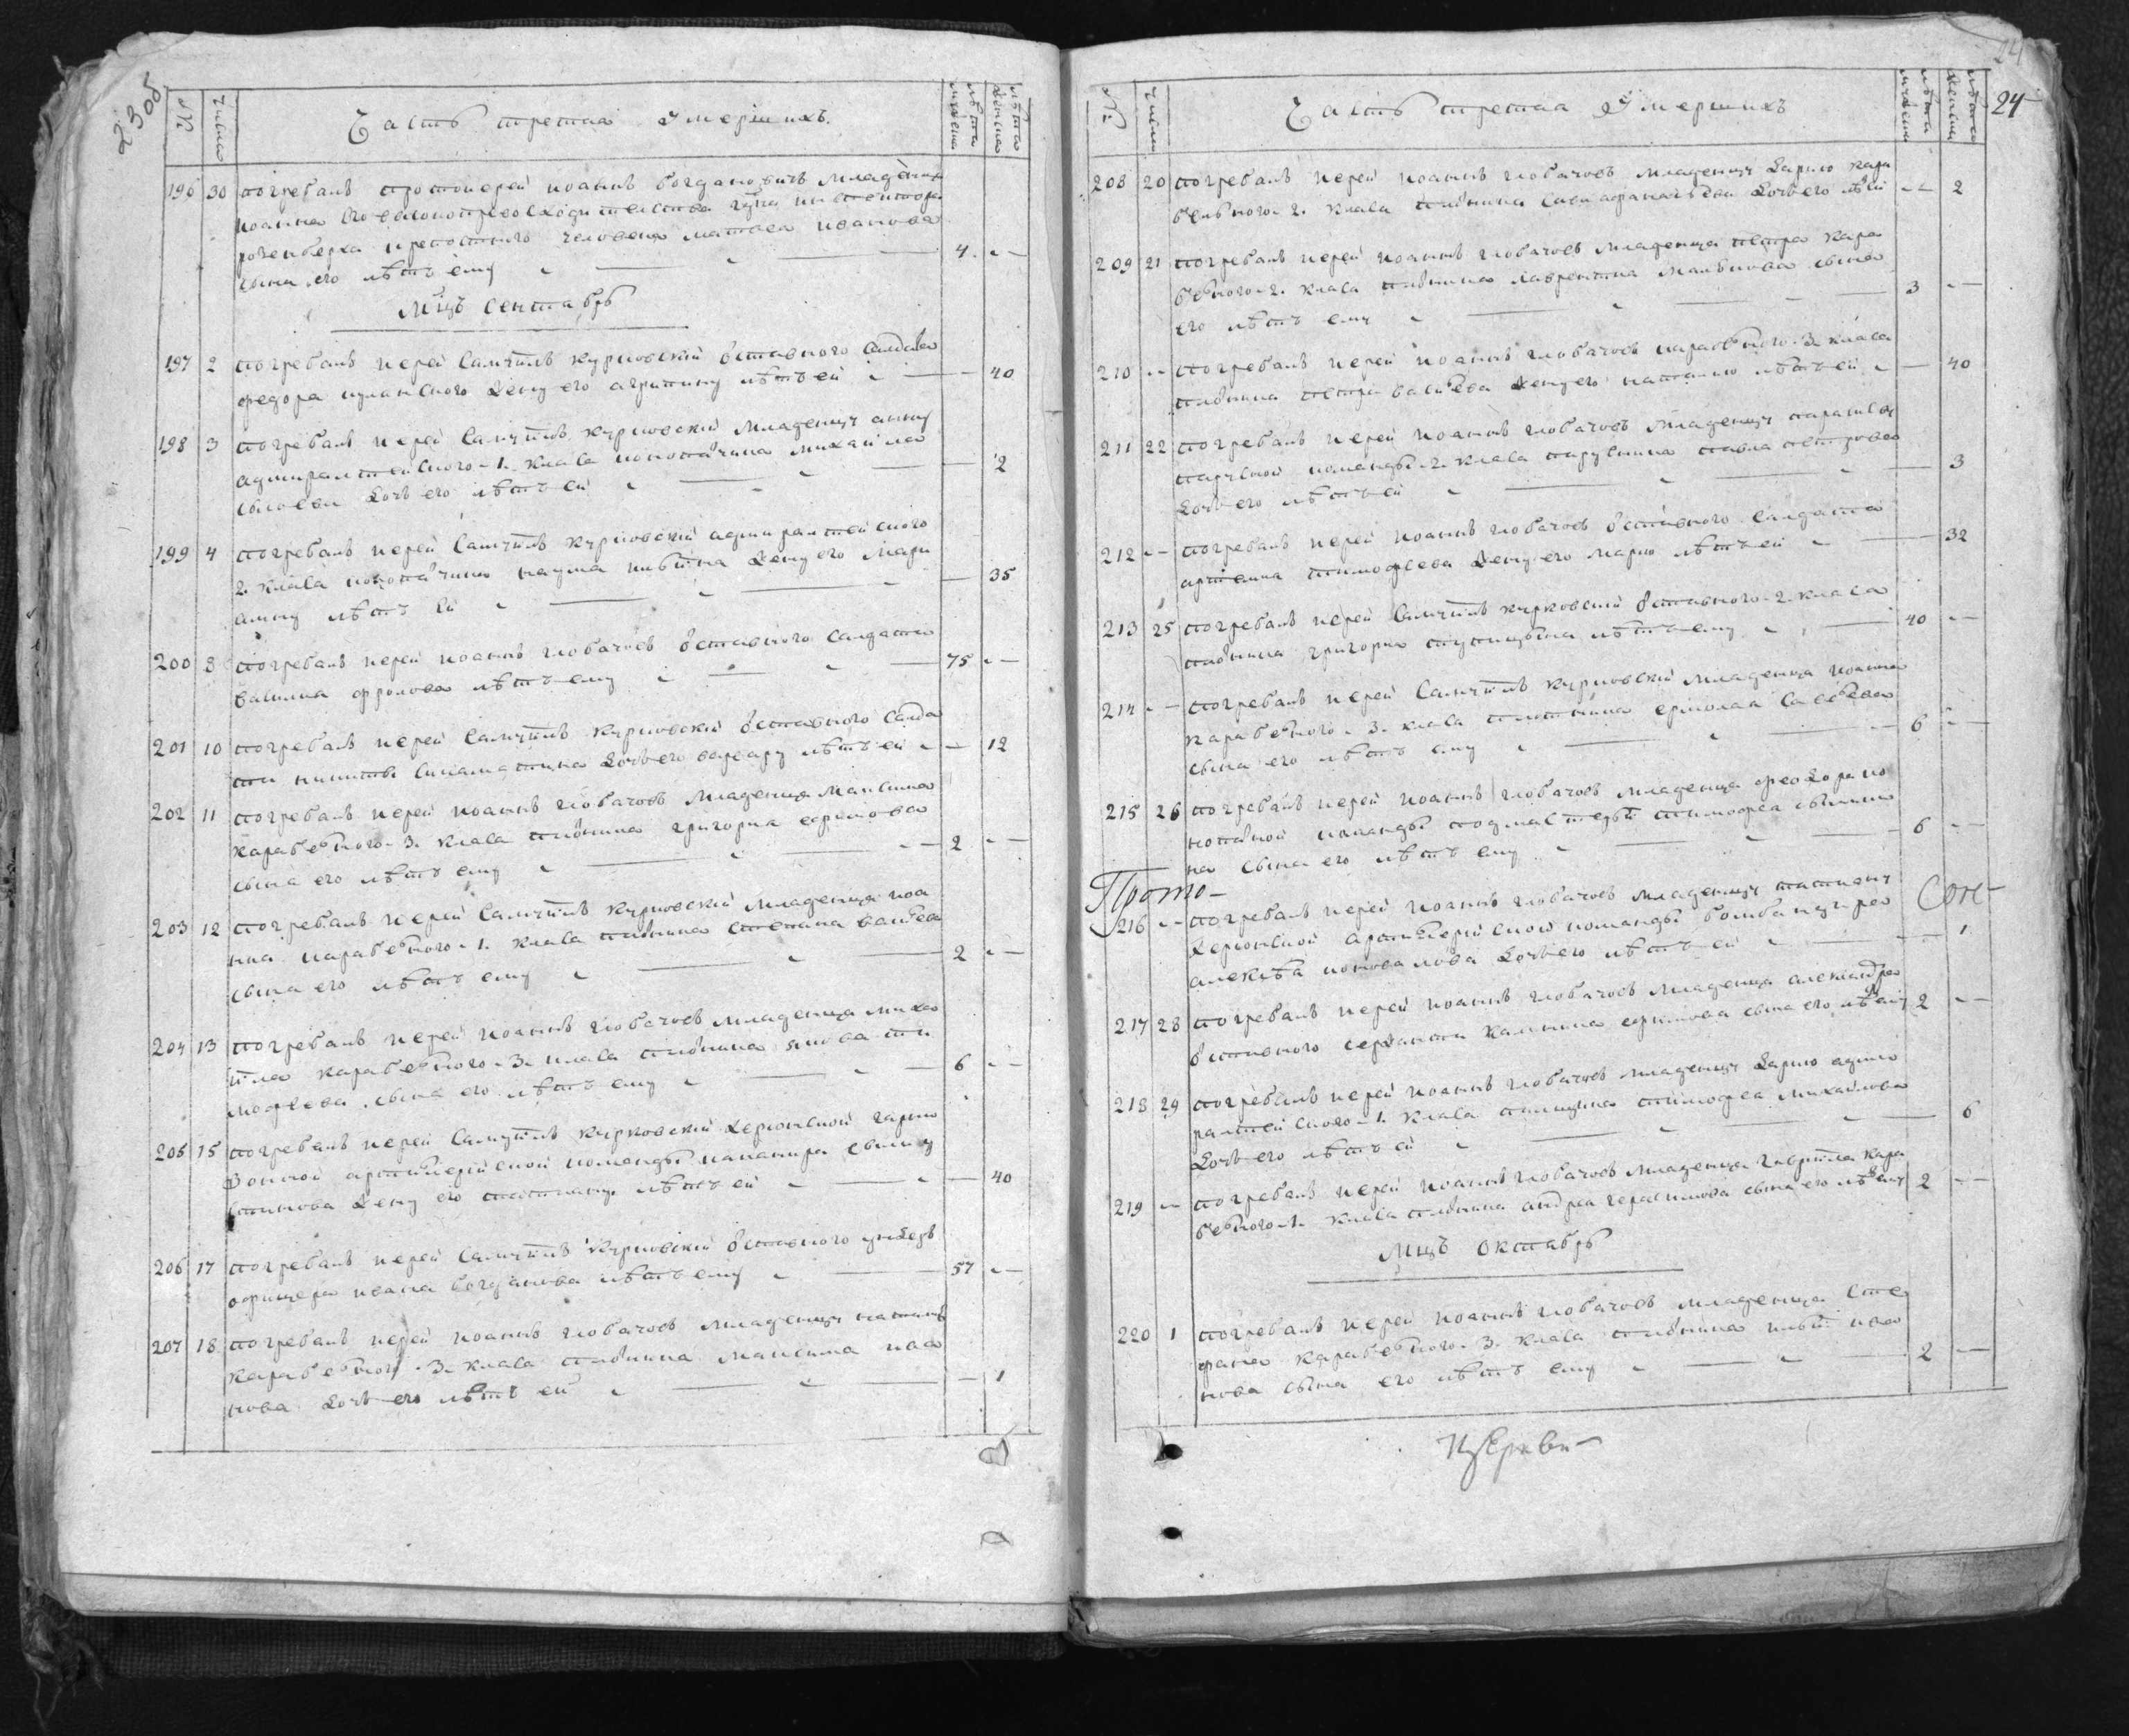 23 об
№ Число Часть третая Умершихъ. лѣта мужеска лѣта женска
196 30 погребалъ протоиерей иоаннъ богдановичъ младенца
иоанна его высокопревосходителства
розенберха крепостного человека матвея иванова
сына его лѣтъ ему 4. —
Мцъ Сентябрь
197 2 погребалъ иерей Самуилъ курковскій оставного Салдата
федора жену его агрипину лѣтъ ей — 40
198 3 погребалъ иерей Самуилъ курковскій младенцу анну
адмиралтейского 1. класа конопачика михаила
дочь его лѣтъ ей — 2
199 4 погребалъ иерей Самуилъ курковскій адмиралтейского
2. класа конопачика наума жену его мари
анну лѣтъ ей — 35
200 8 погребалъ иерей иоаннъ глобачовъ оставного Салдата
василиа фролова лѣтъ ему 75 —
201 10 погребалъ иерей Самуилъ курковскій оставного Салда
та никиты дочь его варвару лѣтъ ей — 12
202 11 погребалъ иерей иоаннъ глобачовъ младенца максима
карабелного 3. класа плотника григориа ефимова
сына его лѣтъ ему 2 —
203 12 погребалъ иерей Самуилъ курковскій младенца иоа
нна карабелного 1. класа плотника степана васильева
сына его лѣтъ ему 2 —
204 13 погребалъ иерей иоаннъ глобачовъ младенца миха
ила карабелного 3. класа плотника якова ти
мофеева сына его лѣтъ ему 6 —
205 15 погребалъ иерей Самуилъ курковскій херсонской гарни
зонной артилерійской команды канонира
жену его татиану лѣтъ ей — 40
206 17 погребалъ иерей Самуилъ курковскій оставного ундеръ
офицера ивана богданова лѣтъ ему 57 —
207 18 погребалъ иерей иоаннъ глобачовъ младенцу
карабелного 3. класа плотника максима ива
нова дочь его лѣтъ ей — 1
24
№ Число Часть третая Умершихъ лѣта мужеска лѣта женска
208 20 погребалъ иерей иоаннъ глобачовъ младенцу дарию кара
белного 2. класа плотника савы афанасьева дочь его лѣтъ ей — 2
209 21 погребалъ иерей иоаннъ глобачовъ младенца петра кара
белного 2. класа плотника лаврентиа сына
его лѣтъ ему 3 —
210 — погребалъ иерей иоаннъ глобачовъ карабелного 3. класа
плотника петра васильева жену его наталию лѣтъ ей — 40
211 22 погребалъ иерей иоаннъ глобачовъ младенцу параскеву
парусной команды 2. класа парусника павла петрова
дочь его лѣтъ ей — 3
212 — погребалъ иерей иоаннъ глобачовъ оставного салдата
артемиа тимофеева жену его марию лѣтъ ей — 32
213 25 погребалъ иерей Самуилъ курковскій оставного 2. класа
плотника григориа лѣтъ ему 40 —
214 — погребалъ иерей Самуилъ курковскій младенца иоанна
карабелного 3. класа плотника ермолая Савельева
сына его лѣтъ ему 6 —
215 26 погребалъ иерей иоаннъ глобачовъ младенца феодора ко
нопатной команды подмастерья тимофея
на сына его лѣтъ ему 6 —
Прото-
216 — погребалъ иерей иоаннъ глобачовъ младенцу татиану
херсонской артилерійской команды бомбандира
алексѣя коновалова дочь его лѣтъ ей — 1
217 28 погребалъ иерей иоаннъ глобачовъ младенца александра
оставного сержанта ефимова сына его лѣтъ ему 2 —
218 29 погребалъ иерей иоаннъ глобачовъ младенцу дарию адми
ралтейского 1. класа тимофея михайлова
дочь его лѣтъ ей — 6
219 — погребалъ иерей иоаннъ глобачовъ младенца гаврила кара
белного 1. класа плотника андрея герасимова сына его лѣтъ ему 2 —
Мцъ октябрь
220 1 погребалъ иерей иоаннъ глобачовъ младенца Сте
фана карабелного 3. класа плотника ильи ива
нова сына его лѣтъ ему 2 —